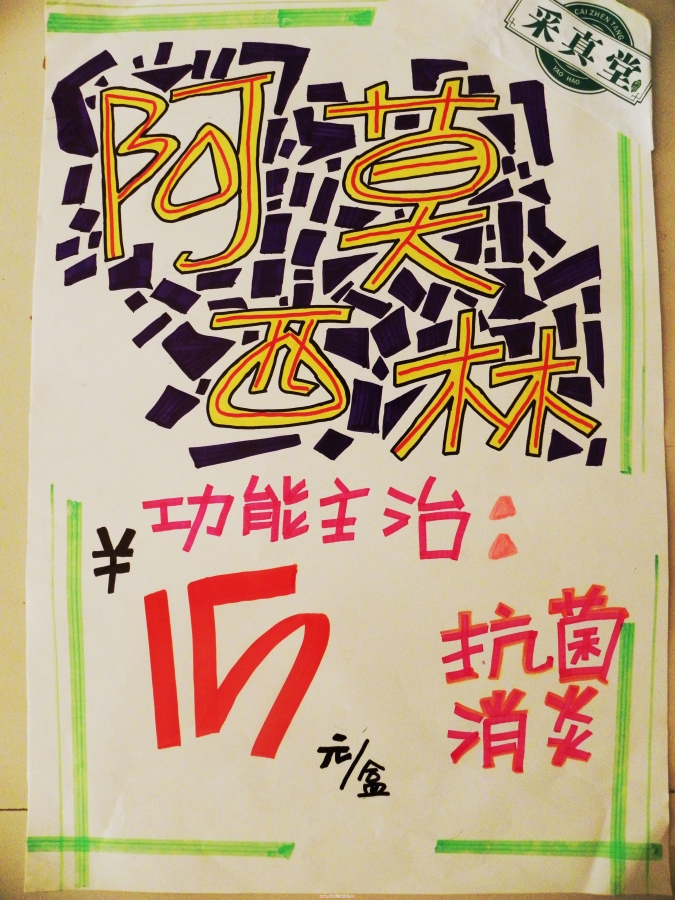 CAI ZHEN TANG
采真堂
YAO HAO
阿莫
西林
功能主治:
¥15
元/盒
抗菌
消炎